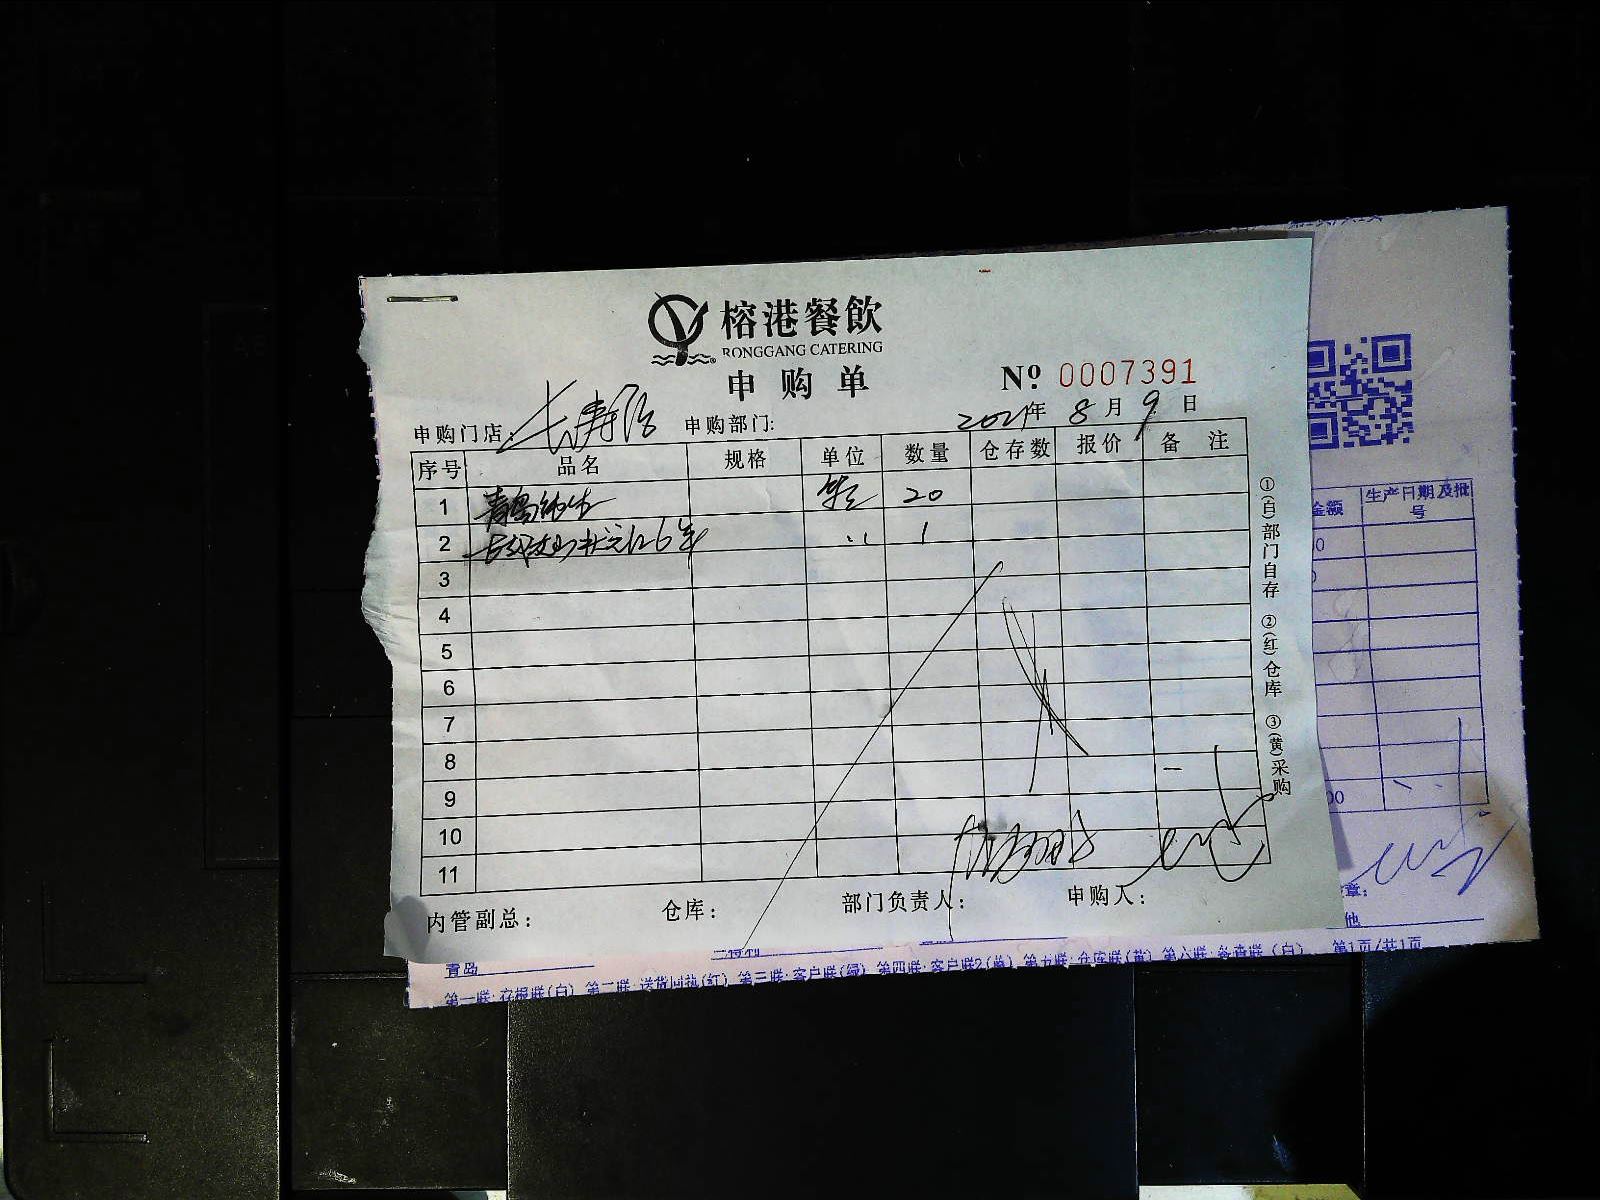 榕港餐飲
RONGGANG CATERING
申购单
№ 0007391
申购门店: 长寿路 申购部门: 2021年 8月 9日
序号 品名 规格 单位 数量 仓存数 报价 备注
1 青岛纯生 20
2 状元红6年 1
3
4
5
6
7
8
9
10
11
内管副总: 仓库: 部门负责人: 申购人:
①(白)部门自存 ②(红)仓库 ③(黄)采购
金额 生产日期及批号
00
章:
他
青岛
第一联:存根联(白) 第二联:送货回执(红) 第三联:客户联(绿) 第四联:客户联2(蓝) 第五联:仓库联(黄) 第六联:备查联(白) 第1页/共1页